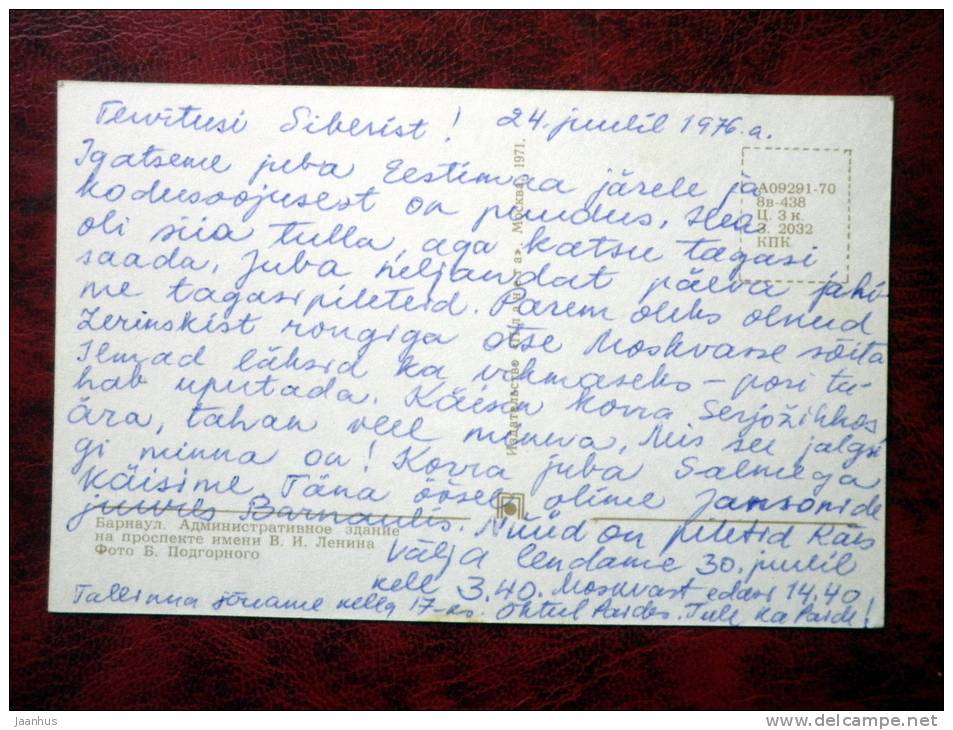 Tervitusi Siberist! 24. juulil 1976.a.
Igatseme juba Eestimaa järele ja
kodusoojusest on puudus. Hea
oli siia tulla, aga katsu tagasi
saada. Juba neljandat päeva jahi-
me tagasipileteid. Parem oleks olnud
Zerinskist rongiga otse Moskvasse sõita
Ilmad läksid ka vihmaseks – pori tü-
hab uputada. Käisin korra Serjožihhos
ära, tahan veel minna. Mis see jalgsi
gi minna on! Korra juba Salmega
käisime. Täna öösel olime Jansonide
juures Barnaulis. Nüüd on piletid käes
Välja lendame 30. juulil
kell 3.40. Moskvast edasi 14.40
Tallinna jõuame kella 17-ks. Õhtul Paides. Tule ka Paide!
А09291-70
8в-438
Ц. 3 к.
З. 2032
КПК
Издательство «Планета». Москва. 1971.
Барнаул. Административное здание
на проспекте имени В. И. Ленина
Фото Б. Подгорного
Jaanhus
www.delcampe.net